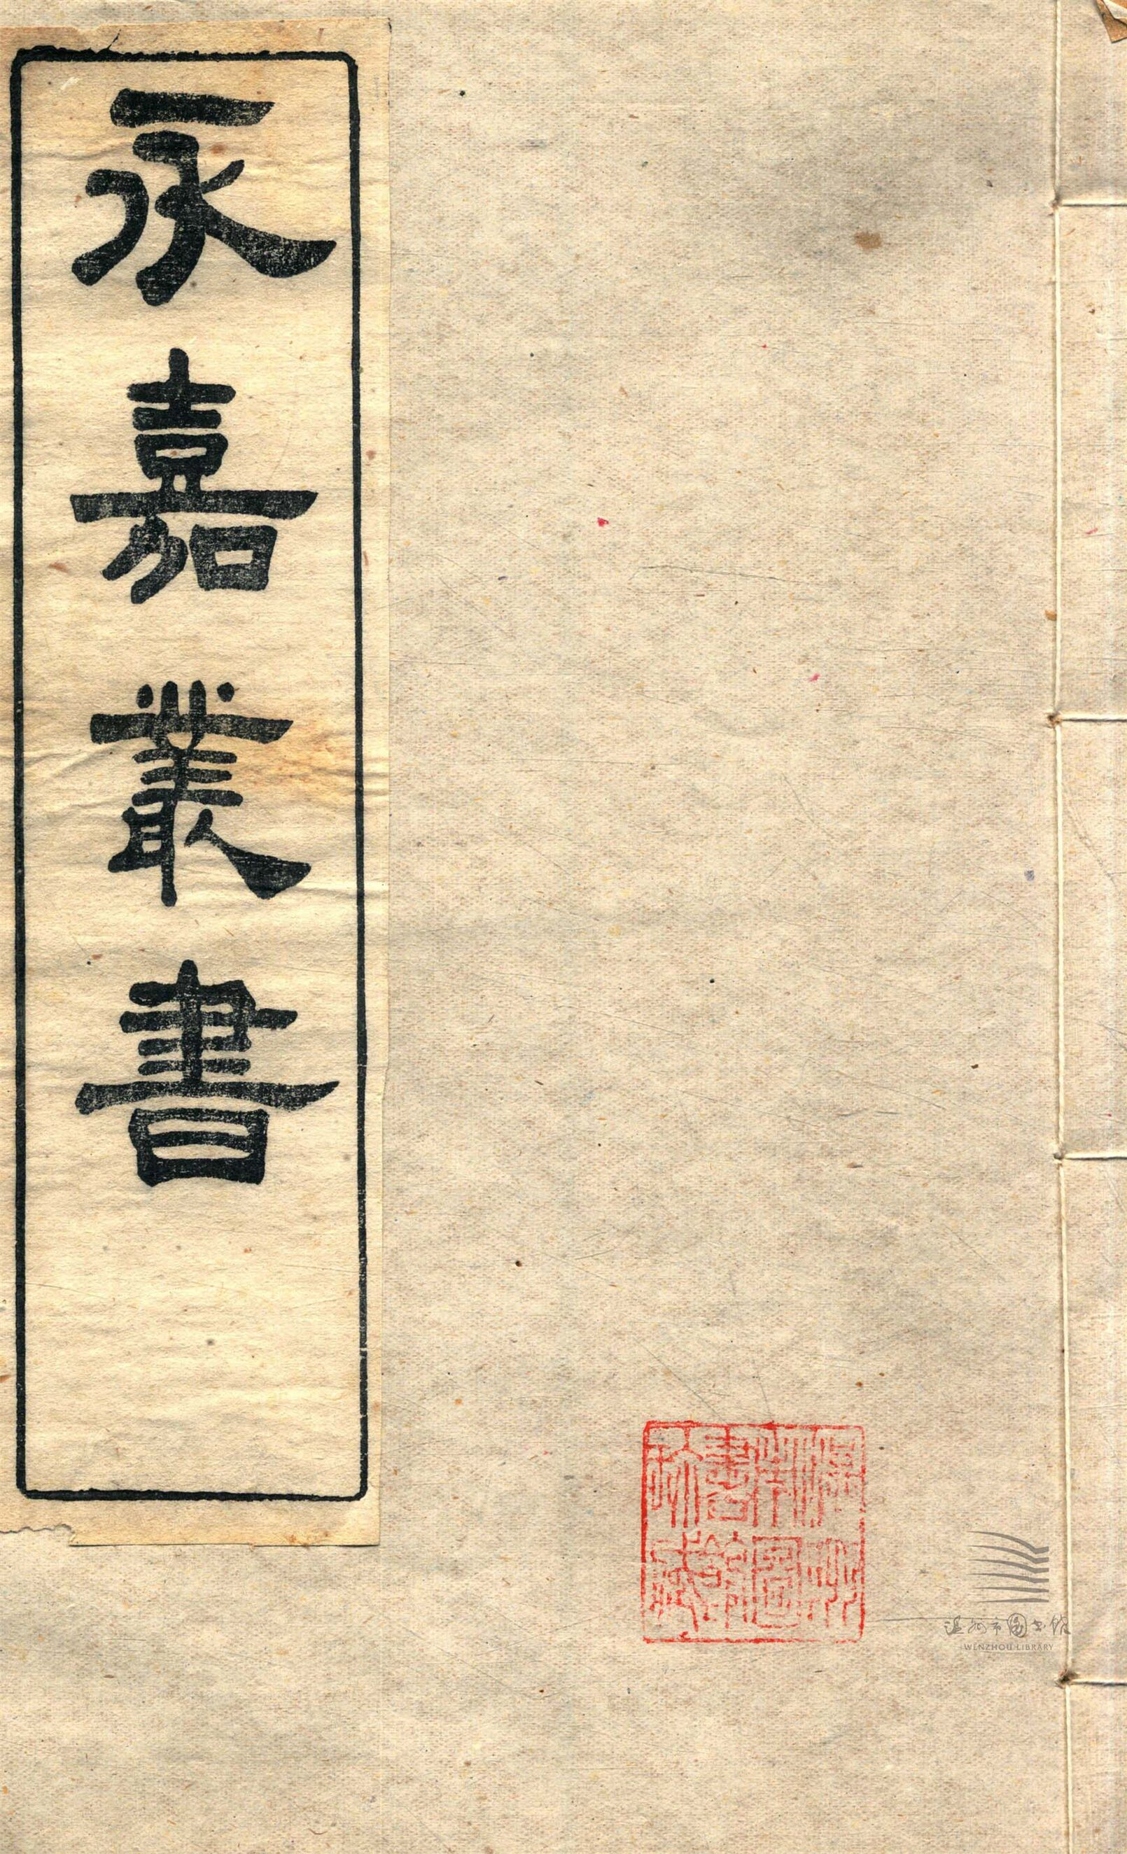 永嘉叢書
溫州市圖書館藏書印
温州市图书馆
WENZHOU LIBRARY